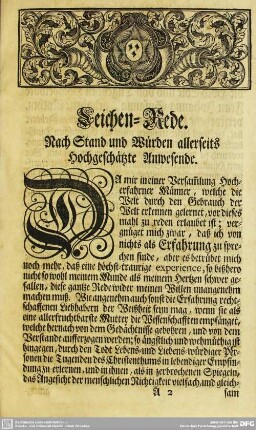 Leichen-Rede.
Nach Stand und Würden allerseits
Hochgeschätzte Anwesende.
DA mir meiner Versammlung Hoch-
erfahrner Männer, welche die
Welt durch den Gebrauch der
Welt erkennen gelernet, vor dieses
mahl zu reden erlaubt ist; ver-
gnüget mich zwar, daß ich von
nichts als Erfahrung zu spre-
chen finde, aber es betrübet mich
noch mehr, daß eine höchst-traurige experience, so bißhero
nicht so wohl meinem Munde als meinem Hertzen schwer ge-
fallen, diese gantze Rede wider meinen Willen unangenehm
machen muß. Wie angenehm auch sonst die Erfahrung recht-
schaffenen Liebhabern der Weißheit seyn mag, wenn sie als
eine allerfruchtbarste Mutter die Wissenschafften empfänget,
welche hernach von dem Gedächtnisse gebohren, und von dem
Verstande aufferzogen werden; so ängstlich und wehmüthig ist
hingegen, durch den Todt Lebens- und Liebens-würdiger Per-
sonen die Tugenden des Christenthums in lebendiger Empfin-
dung zu erlernen, und in ihnen, als in zerbrochenen Spiegeln,
das Angesicht der menschlichen Nichtigkeit vielfach und gleich-
A 2 sam